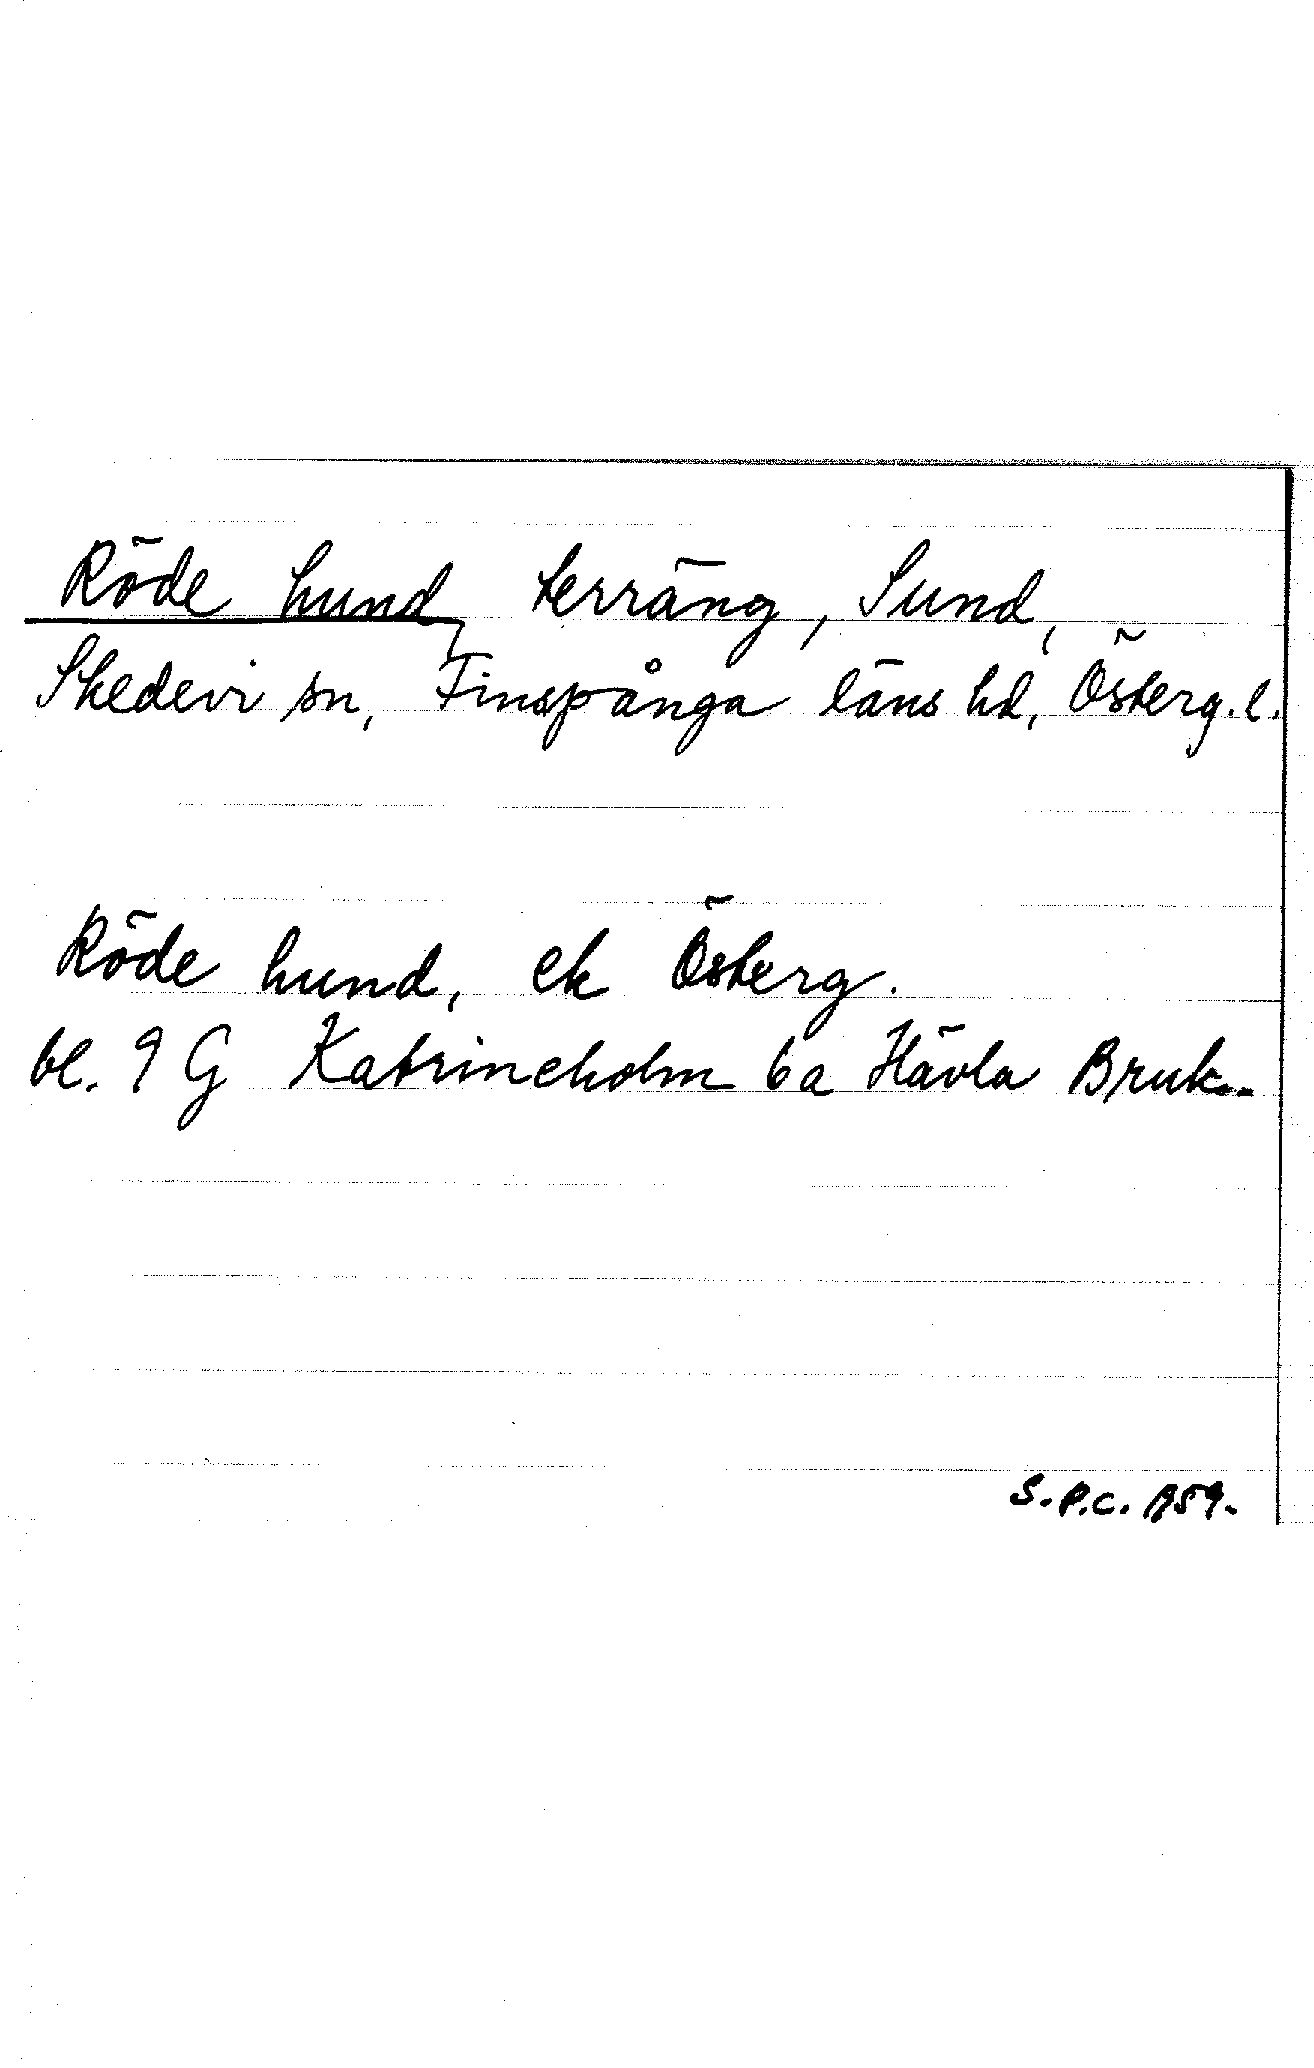 Röde hund, terräng, Sund,
Skedevi sn, Finspånga läns hd, Österg. l.
Röde hund, ek Österg.
bl. 9 G Katrineholm 6a Hävla Bruk.
S.P.C. A59.